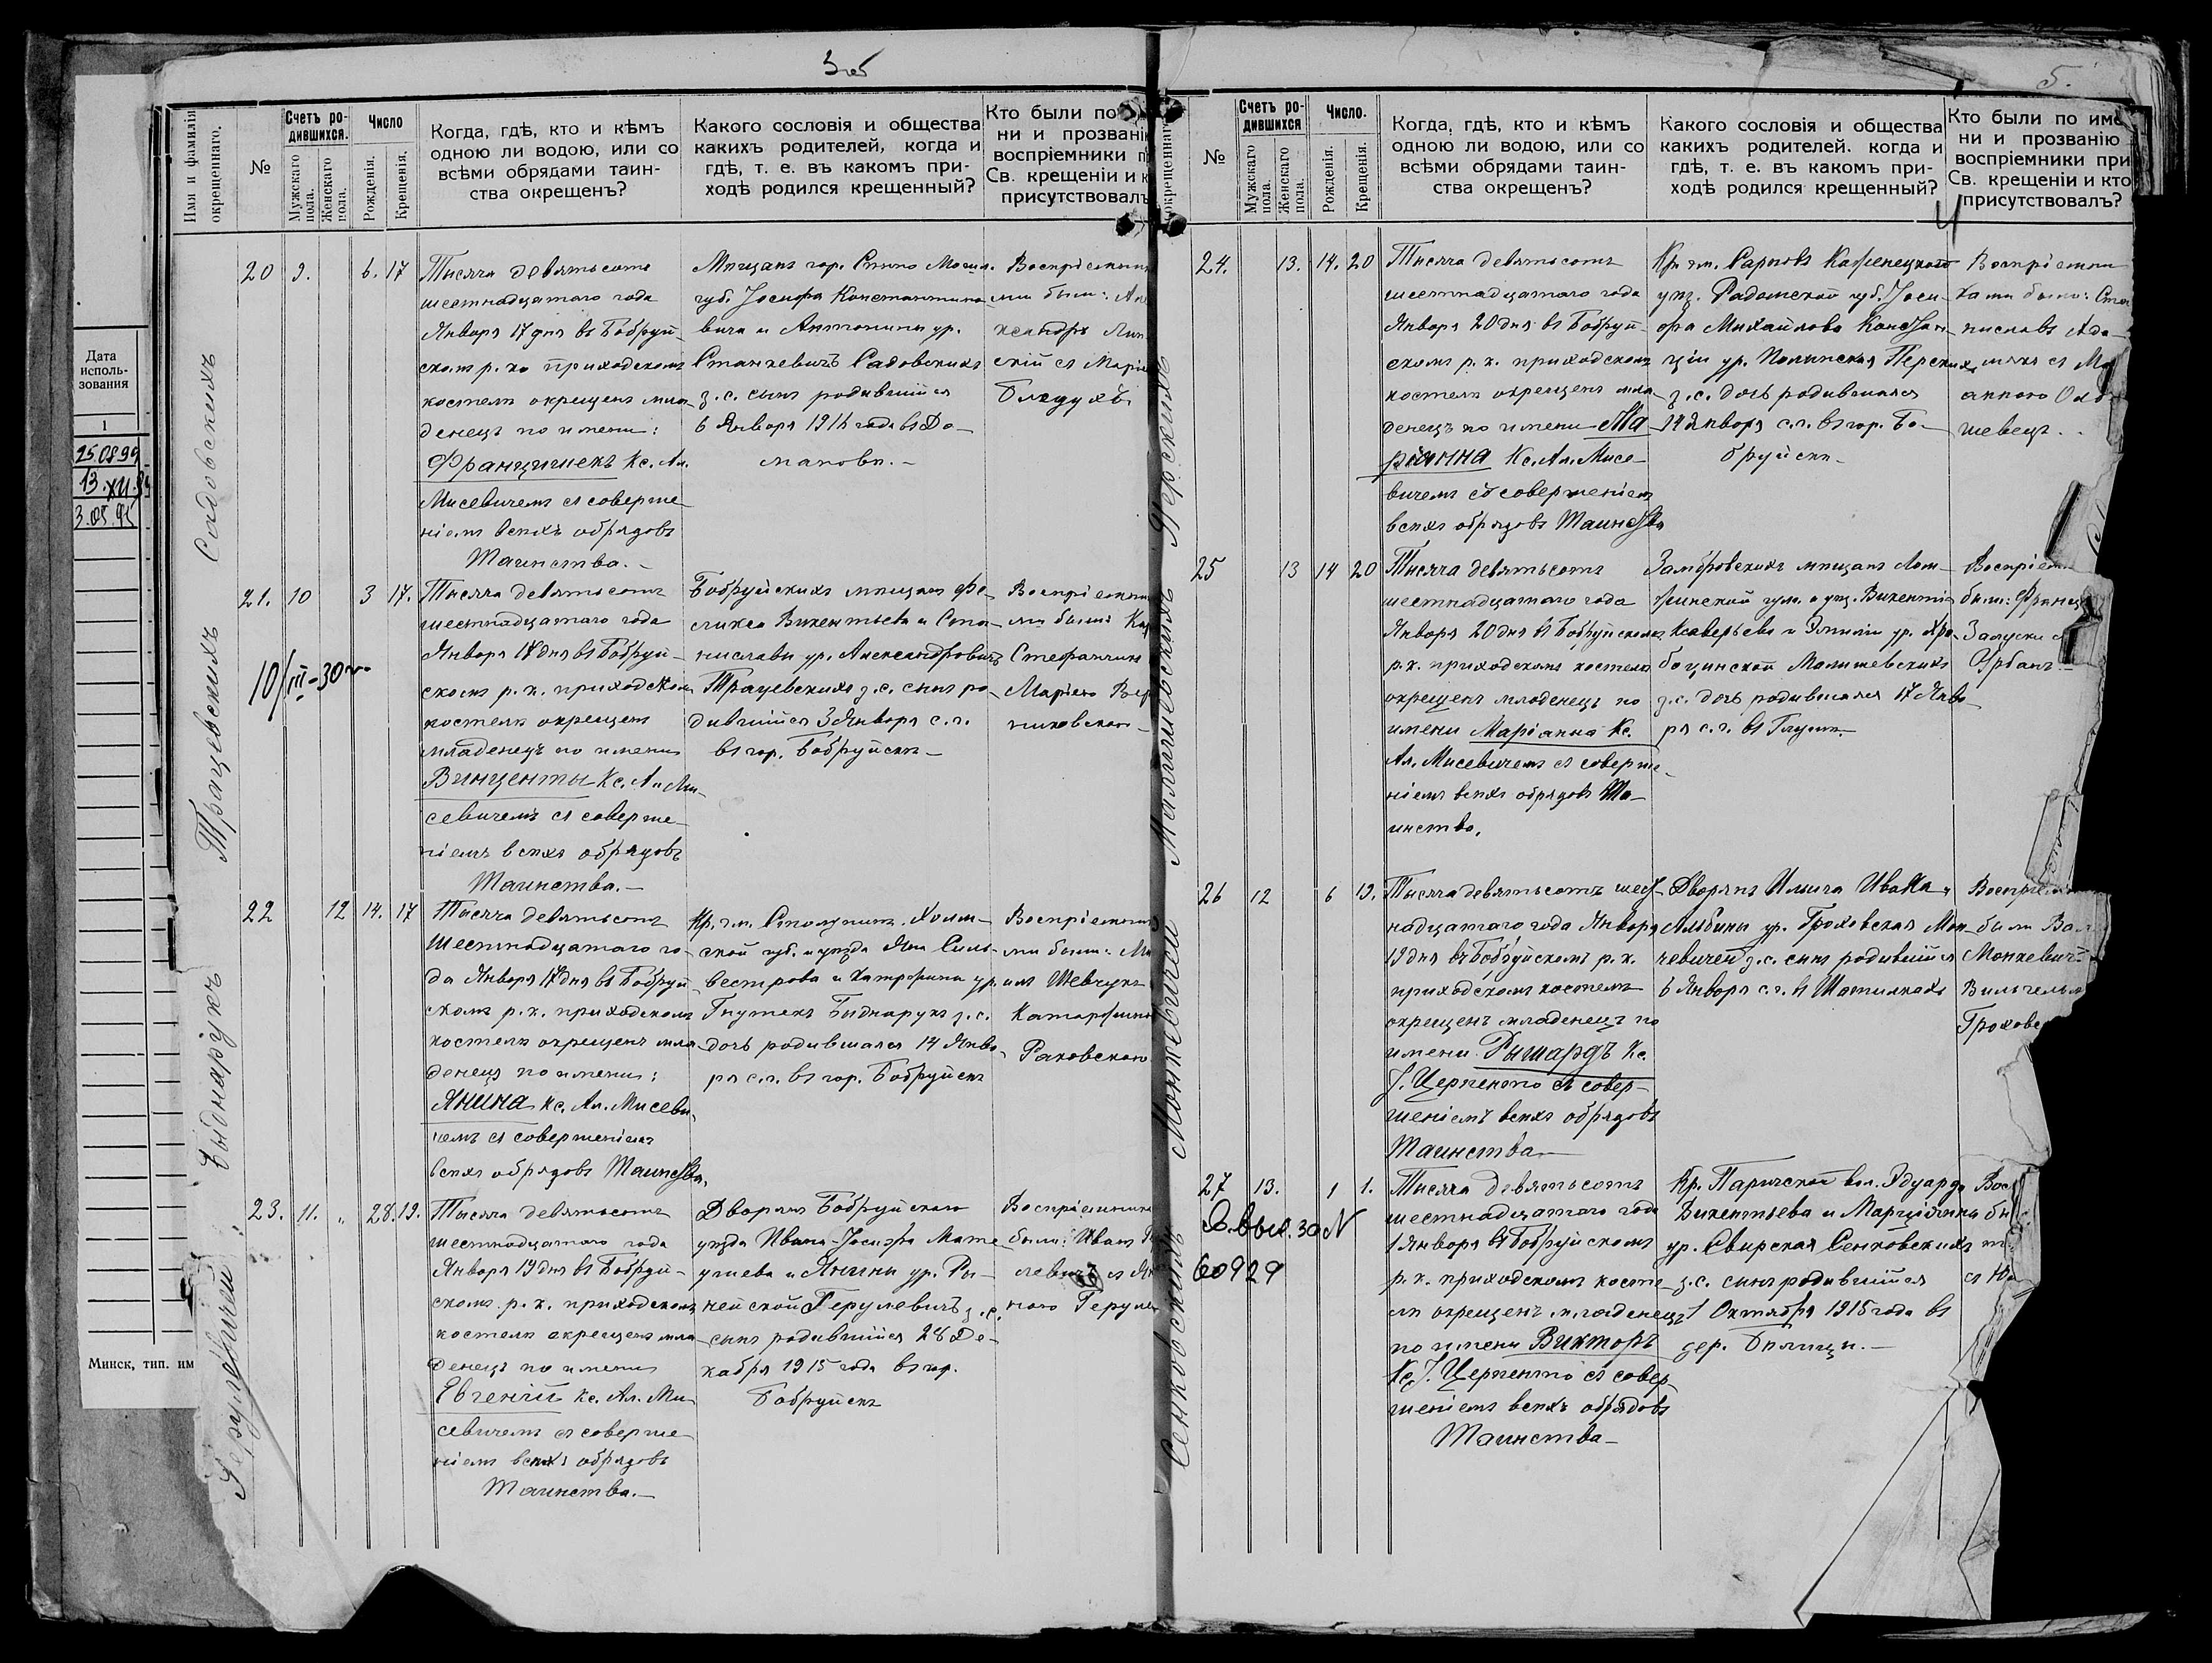 5.
Дата
исполь-
зования
1
25.08.99
13.XII.
3.05.95
Минск, тип. им
Имя и фамилія
окрещеннаго.
№
Счетъ ро-
дившихся.
Мужскаго
пола.
Женскаго
пола.
Число
Рожденія.
Крещенія.
Когда, гдѣ, кто и кѣмъ
одною ли водою, или со
всѣми обрядами таин-
ства окрещенъ?
Какого сословія и общества
какихъ родителей, когда и
гдѣ, т. е. въ какомъ при-
ходѣ родился крещенный?
Кто были по
ни и прозвані
воспріемники п
Св. крещеніи и к
присутствовалъ
Садовскихъ
20 9. 6. 17
Тысяча девятьсотъ
шестнадцатаго года
Января 17 дня въ Бобруй-
скомъ р. к. приходскомъ
костелѣ окрещенъ мла-
денецъ по имени:
Францишекъ Кс. Ал.
Мисевичемъ съ соверше
ніемъ всѣхъ обрядовъ
Таинства.-
губ. Іосифа Константино-
вича и Антонины ур.
Станкевичъ Садовскихъ
з. с. сынъ родившійся
6 Января 1916 года въ До-
мановѣ.-
Воспріемник
ми были: Ал
ксандръ
скій съ Марі
Трацевскихъ
21. 10 3 17.
10/III-30
Тысяча девятьсотъ
шестнадцатаго года
Января 17 дня въ Бобруй-
скомъ р. к. приходском
костелѣ окрещенъ
младенецъ по имени
Винценты Кс. Ал. Ми-
севичемъ съ соверше-
ніемъ всѣхъ обрядовъ
Таинства.-
Бобруйскихъ мѣщанъ Фе-
ликса Викентьева и Ста-
ниславы ур. Александровичъ
Трацевскихъ з. с. сынъ ро-
дившійся 3 Января с. г.
въ гор. Бобруйскѣ-
Воспріемник
ми были:
Стефанчик
Маріею
Быднарукъ
22 12 14. 17
Тысяча девятьсотъ
шестнадцатаго го-
да Января 17 дня въ Бобруй-
скомъ р. к. приходскомъ
костелѣ окрещенъ мла-
денецъ по имени:
Янина Кс. Ал. Мисеви-
чемъ съ совершеніемъ
всѣхъ обрядовъ Таинства.
Холм-
ской губ. и уѣзда Яна Силь-
вестрова и Катаржины ур.
з. с.
дочь родившаяся 14 Янва-
ря с. г. въ гор. Бобруйскѣ
Воспріемник
ми были: Ми
Шевчукъ
Катаржин
Раковскою
Герулевичей
23. 11. „ 28. 19.
Тысяча девятьсотъ
шестнадцатаго года
Января 19 дня въ Бобруй-
скомъ р. к. приходскомъ
костелѣ окрещенъ мла-
денецъ по имени
Евгеній Кс. Ал. Ми-
севичемъ съ соверше-
ніемъ всѣхъ обрядовъ
Таинства.-
Дворянъ Бобруйскаго
уѣзда Ивана-Іосифа Мате-
ушева и Янины ур. Ры-
нейской Герулевичъ з. с.
сынъ родившійся 28 Де-
кабря 1915 года въ гор.
Бобруйскѣ
Воспріемник
были: Иванъ
левичъ съ Ян
ною Геруле
окрещеннаго
№
Счетъ ро-
дившихся
Мужскаго
пола.
Женскаго
пола.
Число.
Рожденія.
Крещенія.
Когда, гдѣ, кто и кѣмъ
одною ли водою, или со
всѣми обрядами таин-
ства окрещенъ?
Какого сословія и общества
какихъ родителей. когда и
гдѣ, т. е. въ какомъ при-
ходѣ родился крещенный?
Кто были по име
ни и прозванію
воспріемники при
Св. крещеніи и кто
присутствовалъ?
Перскихъ
24. 13. 14. 20
Тысяча девятьсотъ
шестнадцатаго года
Января 20 дня въ Бобруй-
скомъ р. к. приходскомъ
костелѣ окрещенъ мла-
денецъ по имени Ма
ріанна Кс. Ал. Мисе-
вичемъ съ совершеніемъ
всѣхъ обрядовъ Таинства
уѣз. Радомской губ. Іоси-
фа Михайлова Констан-
ціи ур. Перскихъ
з. с. дочь родившаяся
14 Января с. г. въ гор. Бо-
бруйскѣ-
Воспріемни
ками были: Ста
ниславъ Ада-
съ Ма
шевецъ.
Малишевскихъ
25 13 14 20
Тысяча девятьсотъ
шестнадцатаго года
Января 20 дня въ Бобруйскомъ
р. к. приходскомъ костелѣ
окрещенъ младенецъ по
имени Маріанна Кс.
Ал. Мисевичемъ съ соверше-
ніемъ всѣхъ обрядовъ Та-
инства.
Замбровскихъ мѣщанъ Лом-
жинской губ. и уѣз. Викентія
Ксаверьева и Эмиліи ур. Хра-
боцинской Малишевскихъ
з. с. дочь родившаяся 17 Янва-
ря с. г. въ Глускѣ.-
Воспріем
были: Франц
Залуски с
Урбанъ-
Монкевичей
26 12 6 19.
Тысяча девятьсотъ шест-
надцатаго года Января
19 дня въ Бобруйскомъ р. к.
приходскомъ костелѣ
окрещенъ младенецъ по
имени Рышардъ Кс.
І. Церпенто съ совер-
шеніемъ всѣхъ обрядовъ
Таинства-
Дворянъ Ивана
Альбины ур. Гроховская Мон-
кевичей з. с. сынъ родившійся
6 Января с. г. въ Шатилкахъ
Воспріем
были
Монкевичъ
Вильгельм
Грохов
Сенковскихъ
27 13. 1 1.
60929
Тысяча девятьсотъ
шестнадцатаго года
1 Января въ Бобруйскомъ
р. к. приходскомъ косте-
лѣ окрещенъ младенецъ
по имени Викторъ
Кс. І. Церпенто съ совер-
шеніемъ всѣхъ обрядовъ
Таинства-
Кр. Паричской вол. Эдуарда
Викентьева и Марціянны
ур. Свирская Сенковскихъ
з. с. сынъ родившійся
1 Октября 1915 года въ
дер.
Вос
бы